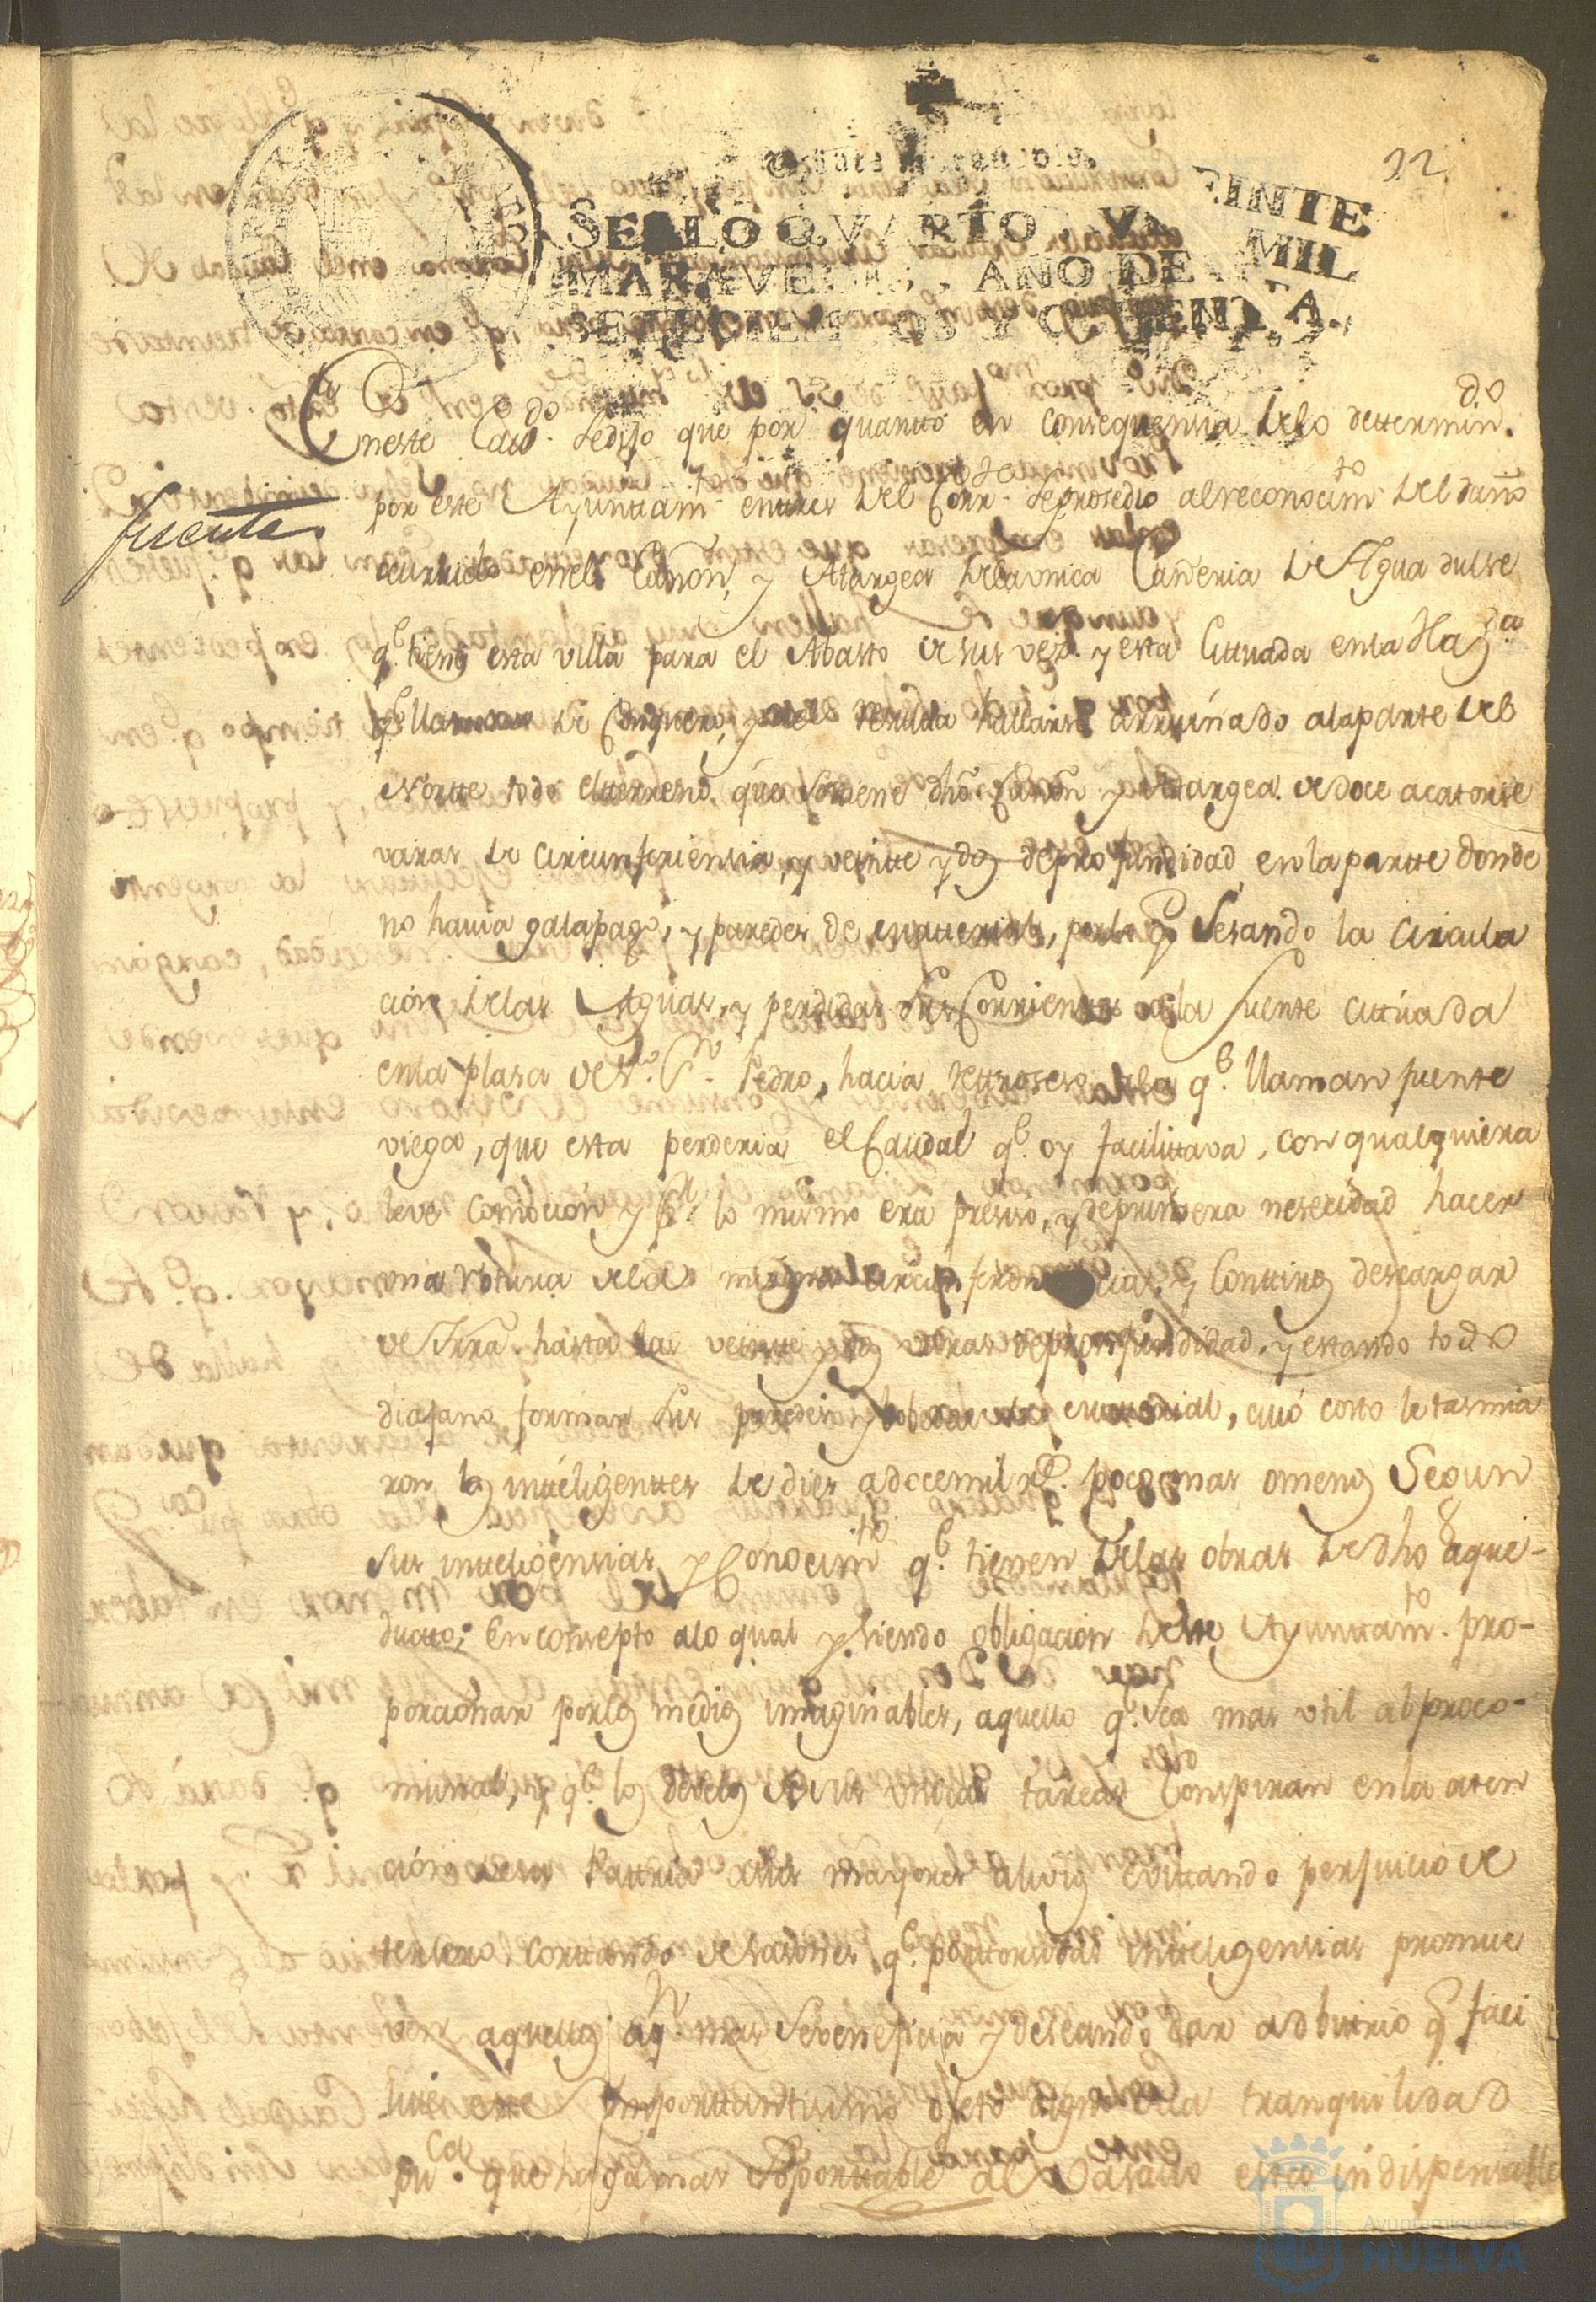 22
Veinte maravedis.
SELLO QVARTO, VEINTE
MARAVEDIS, AÑO DE MIL
SETECIENTOS Y OCHENTA.
Eneste Cavdo. sedijo que por quanto en consequensia delo dettermindo.
fuente
por este Ayunttamto. enttres del Corrte. seprosedio alreconocimto. del daño
ocurrido enel Cañon, y Atargea dela vnica Cañeria de Agua dulse
qe. tiene esta villa para el Abasto desus vezos. y esta cittuada enla Hazda.
qe. llaman de Conquero, y del resulta hallarse arruinado alaparte del
Nortte todo eltterreno que sostiene dho Cañon y Atargea de doce acatorse
varas de circunferiensia, y veintte y dos deprofundidad enlapartte donde
no havia galapago, y paredes de matterial, porlo qe. Sesando la circula
ción delas Aguas, y perdidas sus Corrientes ala fuente cittúada
enla plasa deSr. Sn. Pedro, hacia rettroseso ala qe. llaman fuente
viega, que esta perderia el Caudal qe. oy facilittava, con qualquiera
leve comoción y pr. lo mismo era presiso, y deprimera nesecidad hacer
una rotura dela misma circunferencia, y Conttinos descargar
de Trra. hasta las veintte y dos varas deprofundidad, y estando todo
diafano formar sus paredes y bobedas de matterial, cuió costo letasmia
ron los intteligenttes de dies adocemil rs. pocomas omenos Segun
sus intteligensias y Conocimto. qe. tienen delas obras de dho aque-
ductto; En consepto alo qual y siendo obligacion deeste Ayunttamto. pro-
porcionar porlos medios imaginables, aquello qe. sea mas vtil alproco-
munal, y qe. los desvelos desus tareas Conspiran enla aten
ción desu Pattria asus mayores alivios evittando perjuicio de
tersero, corttando desasones qe. portorsidas intteligensias promue
ven aquellos aqn. mas Sebenefisia y deseando dar adbittrio qe. faci
litte este importtanttisimo ojeto digno dela tranquilidad
puca. que haga mas soporttable al Vasallo esta indispensable
Ayuntamiento de
HUELVA